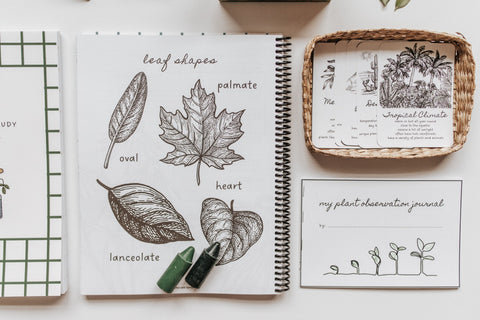 UDY
leaf shapes
palmate
oval
heart
lanceolate
Tropical Climate
my plant observation journal
by: